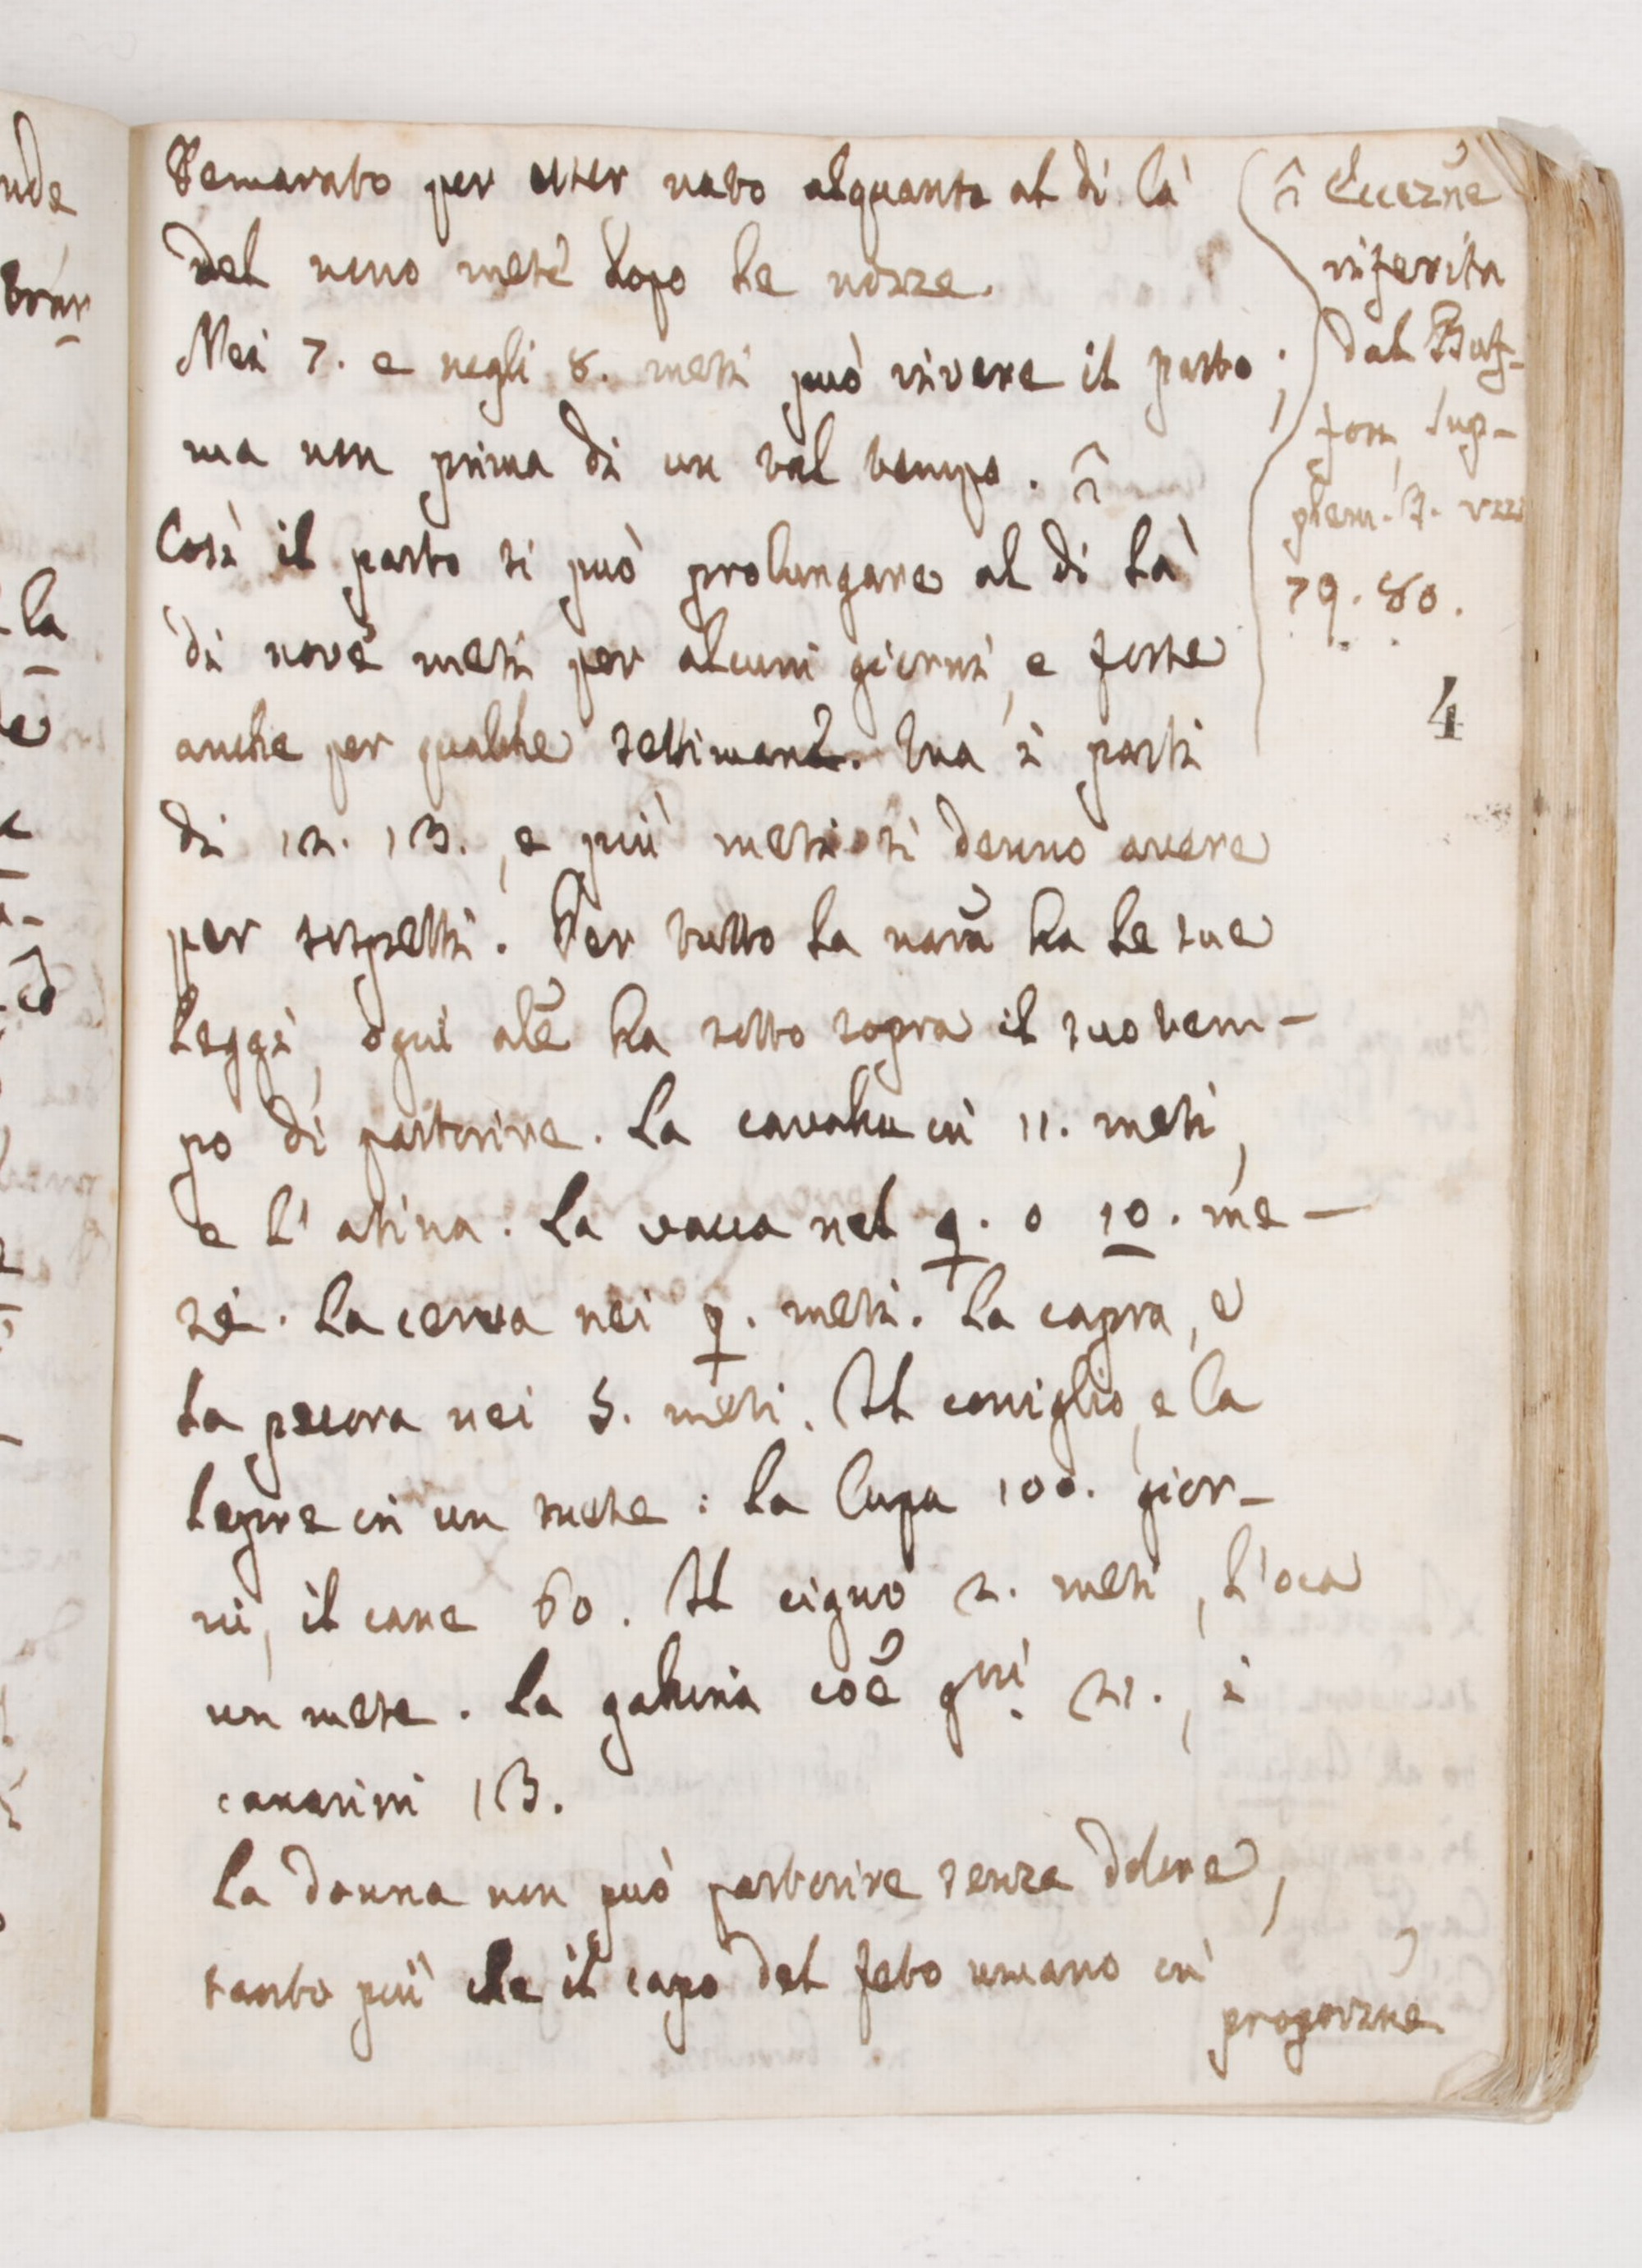 Demarato per esser nato alquanto al di là
del nono mese dopo le nozze.
Nei 7. e negli 8. mesi può vivere il parto;
ma non prima di un tal tempo.
Così il parto si può prolungare al di là
di nove mesi per alcuni giorni, e forse
anche per qualche settimana. Ma i parti
di 12. 13., e più mesi si denno avere
per sospetti. Per tutto la narã ha le sue
leggi, ogni alẽ ha sotto sopra il suo tem-
po di partorire. La cavalla in 11. mesi,
e l'asina. La vacca nel 9. o 10. me-
se. La cerva nei 9. mesi. La capra, e
la pecora nei 5. mesi. Il coniglio, e la
lepre in un mese: la lupa 100. gior-
ni, il cane 60. Il cigno 2. mesi, l'oca
un mese. La gallina coẽ gni. 21., i
canarini 13.
La donna non può partorire senza dolore,
tanto più che il capo del feto umano in
proporzne.
Eccezne
riferita
dal Buf-
fon, sup-
plem. 3.
79. 80.
4
nde
la